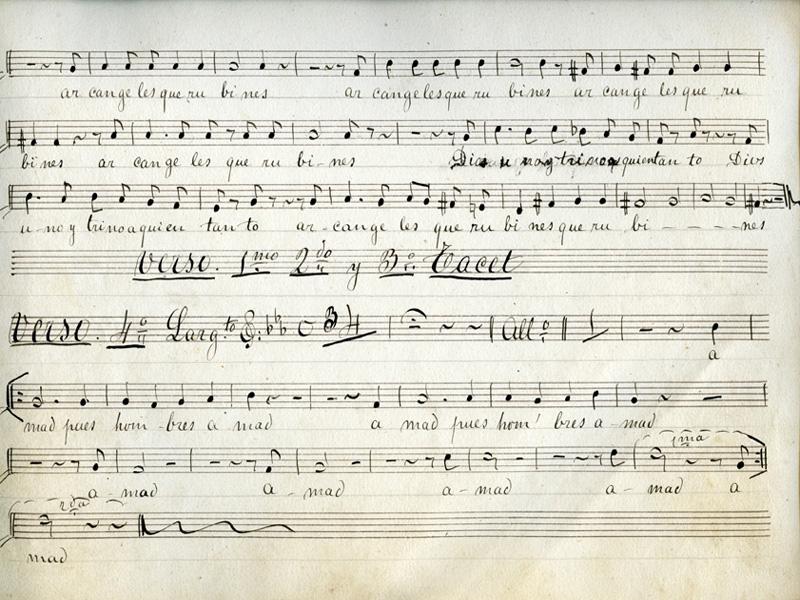 ar cange les que ru bi nes ar cange les que ru bi nes ar cange les que ru
bi nes ar cange les que ru bi- nes Dios u no y trino a quien tan to Dios
u no y trino a quien tan to ar- cange les que ru bi nes que ru bi - - - - nes
Verso. 1mo 2do y 3o Tacet
Verso. 4o Larg.to C 34 All.o
a
mad pues hom - bres a mad a mad pues hom' bres a - mad
1ma
a - mad a - mad a - mad a - mad a
2da
mad